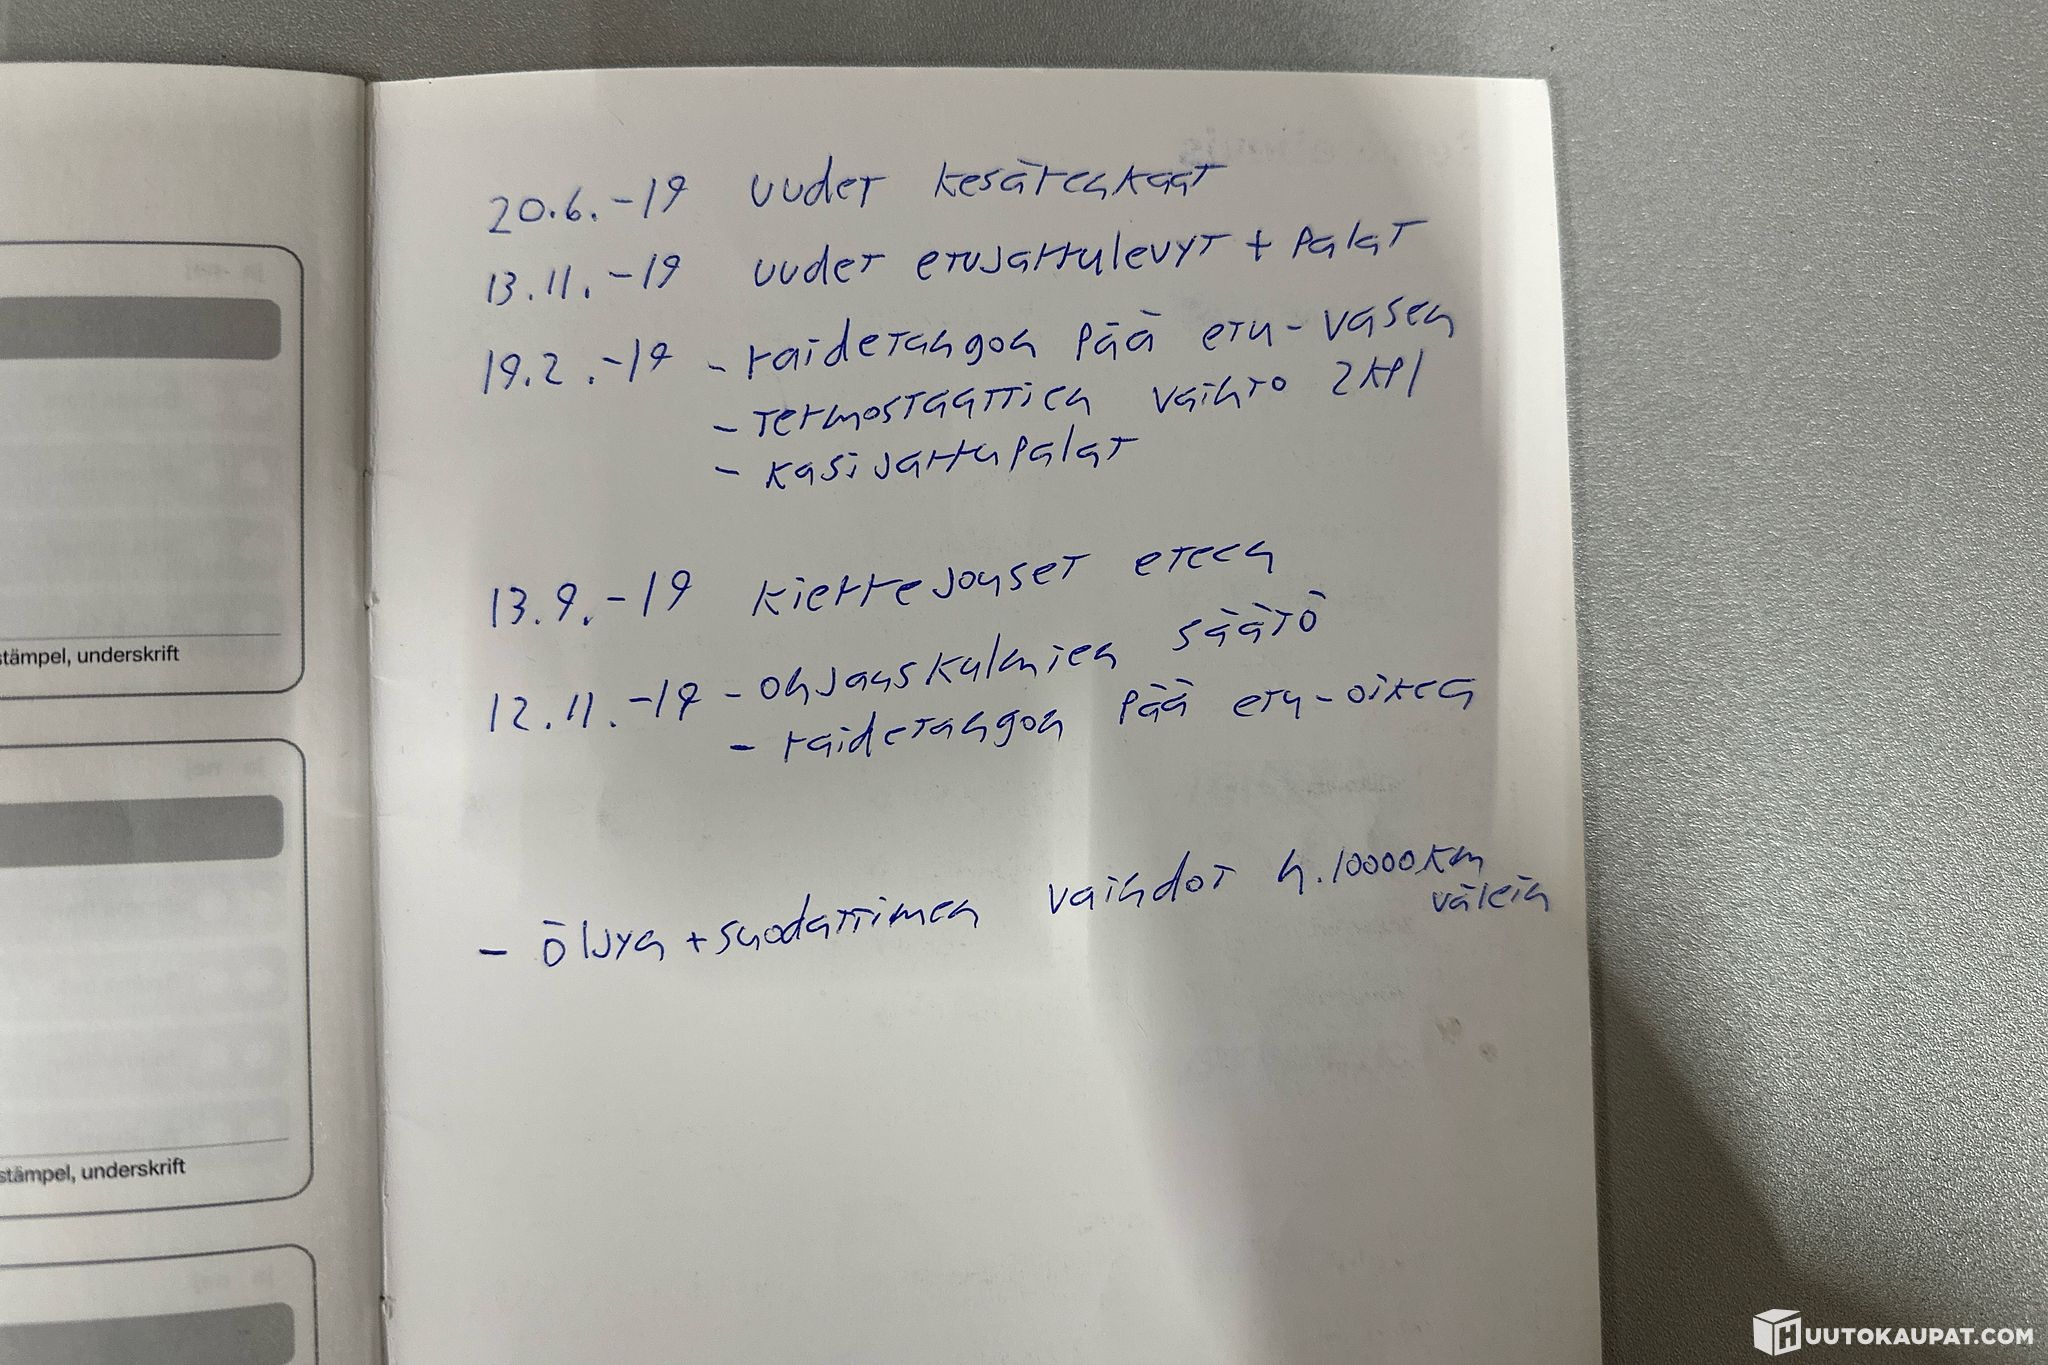 20.6.-19 uudet kesärenkaat
13.11.-19 uudet etujarrulevyt + palat
19.2.-19 - raidetangon pää etu-vasen
- termostaattien vaihto 2 kpl
- käsijarrupalat
13.9.-19 kierrejouset eteen
12.11.-19 - ohjauskulmien säätö
- raidetangon pää etu-oikea
- öljyn + suodattimen vaihdot n. 10000 km
välein
stämpel, underskrift
stämpel, underskrift
HUUTOKAUPAT.COM